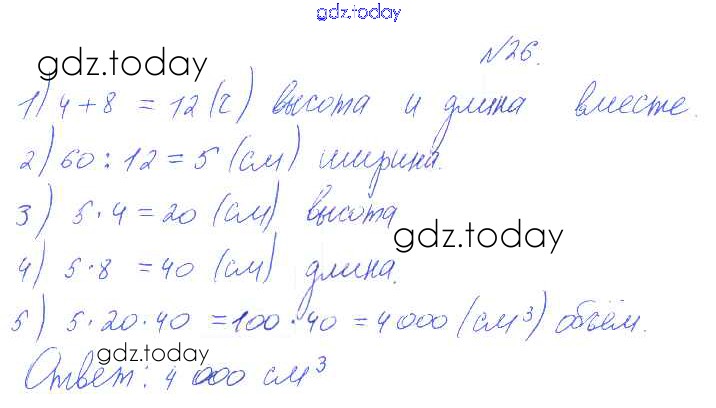 gdz.today
№26.
gdz.today
1) 4+8 = 12 (г) высота и длина вместе.
2) 60:12=5 (см) ширина.
3) 5·4=20 (см) высота
gdz.today
4) 5·8 =40 (см) длина.
5) 5·20·40 =100·40 =4000 (см³) объём.
gdz.today
Ответ: 4 000 см³